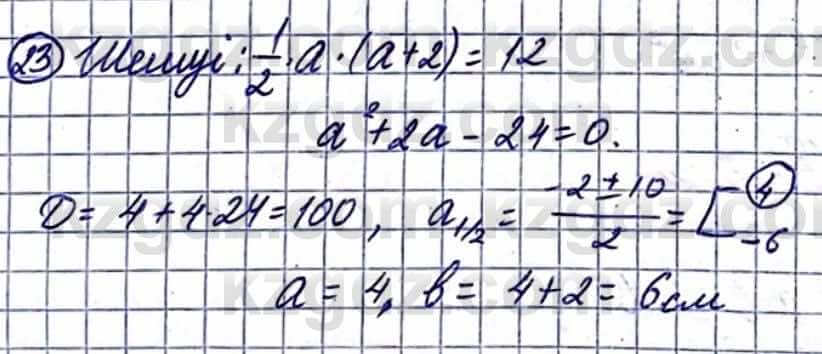 23 Шешуі: 1/2 · a · (a+2) = 12
a²+2a − 24=0.
D= 4+4·24=100, a₁/₂ = (−2±10)/2 = [ 4
−6
a = 4, b = 4+2= 6см
kzgdz.com